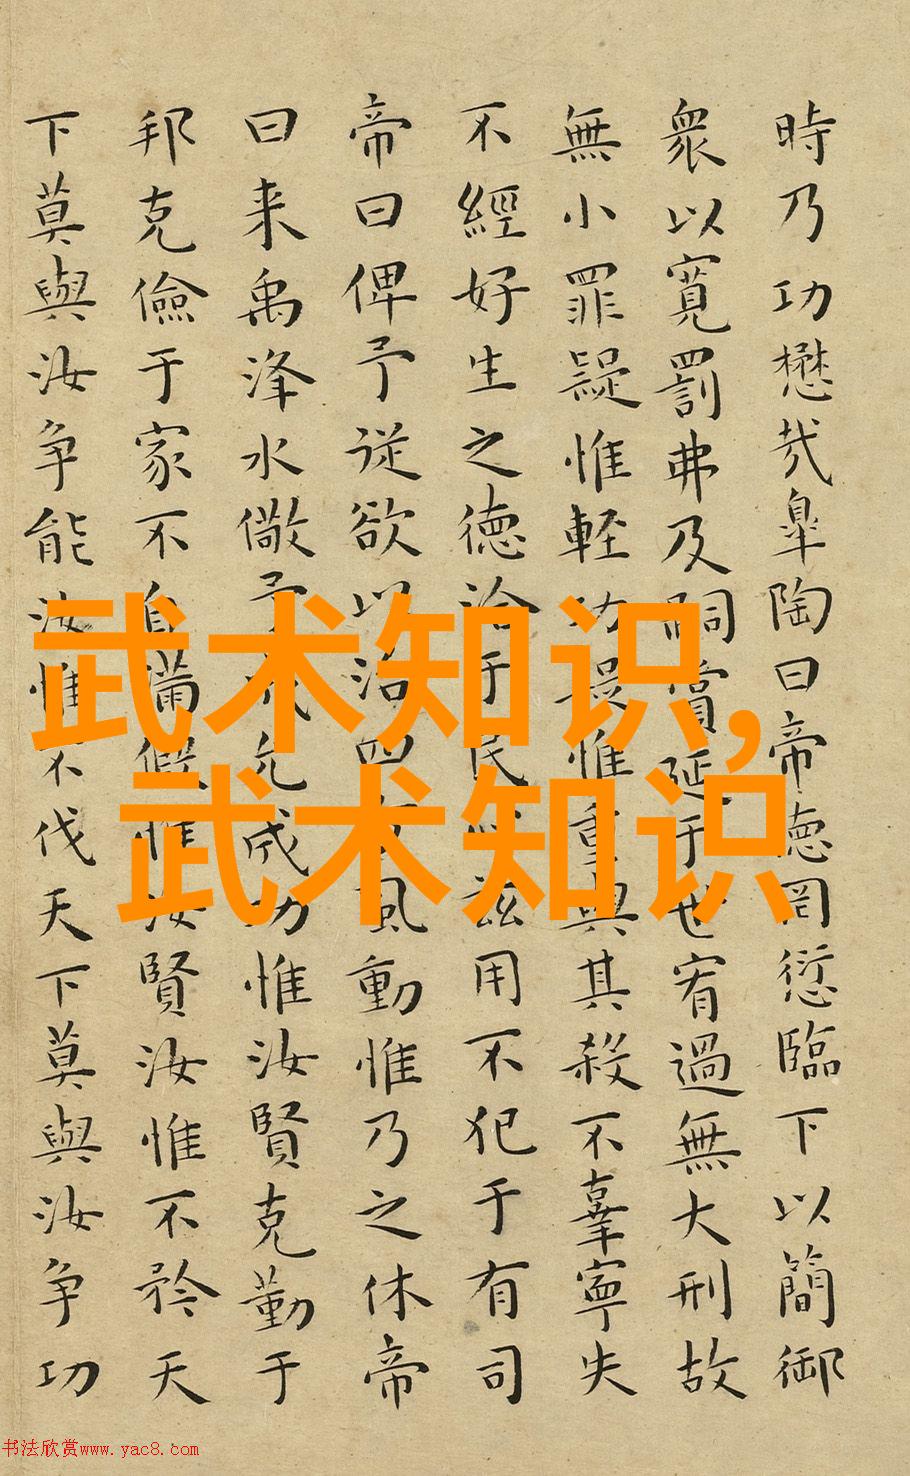 時乃功懋哉皐陶曰帝徳罔愆臨下以簡御
衆以寛罰弗及嗣賞延于世宥過無大刑故
無小罪疑惟軽功疑惟重與其殺不辜寧失
不經好生之徳洽于民心兹用不犯于有司
帝曰俾予従欲以治四方風動惟乃之休帝
曰来禹洚水儆予成允成功惟汝賢克勤于
邦克儉于家不自滿假惟汝賢汝惟不矜天
下莫與汝争能汝惟不伐天下莫與汝争功
武术知识,
武术知识
书法欣赏www.yac8.com